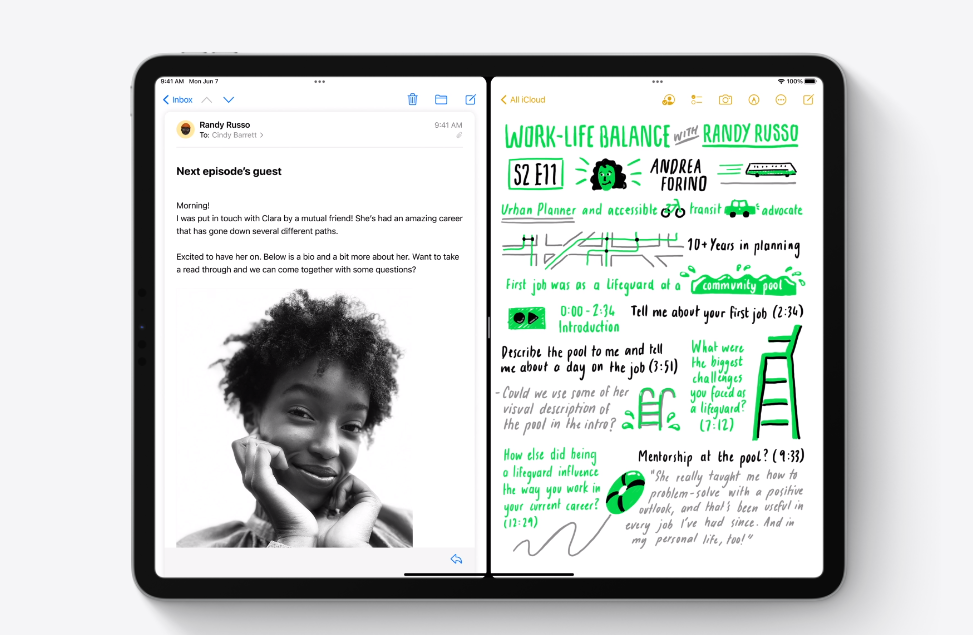 9:41 AM Mon Jun 7
Inbox
Randy Russo
To: Cindy Barrett
9:41 AM
Next episode's guest
Morning!
I was put in touch with Clara by a mutual friend! She's had an amazing career
that has gone down several different paths.
Excited to have her on. Below is a bio and a bit more about her. Want to take
a read through and we can come together with some questions?
100%
All iCloud
WORK-LIFE BALANCE WITH RANDY RUSSO
S2 E11
ANDREA
FORINO
Urban Planner and accessible transit advocate
10+ Years in planning
First job was as a lifeguard at a community pool
0:00 - 2:34
Introduction
Tell me about your first job (2:34)
Describe the pool to me and tell
me about a day on the job (3:51)
- Could we use some of her
visual description of
the pool in the intro?
What were
the biggest
challenges
you faced as
a lifeguard?
(7:12)
How else did being
a lifeguard influence
the way you work in
your current career?
(12:29)
Mentorship at the pool? (9:33)
"She really taught me how to
problem-solve with a positive
outlook, and that's been useful in
every job I've had since. And in
my personal life, too!"